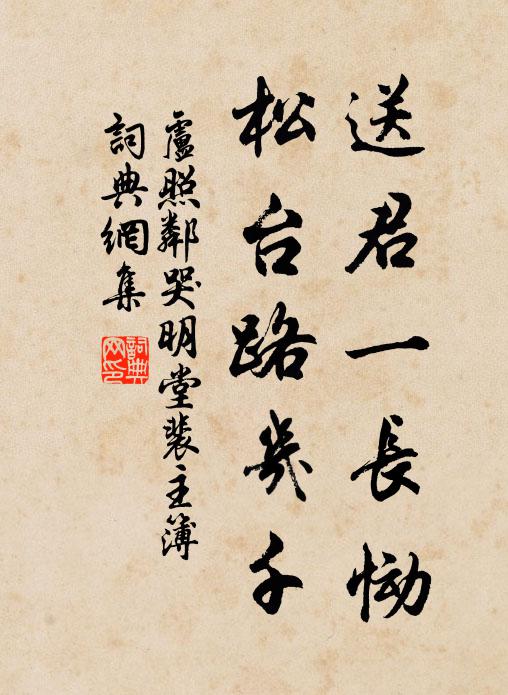 送君一長慟
松台路幾千
盧照鄰哭明堂裴主簿
詞典網集
詞典網印